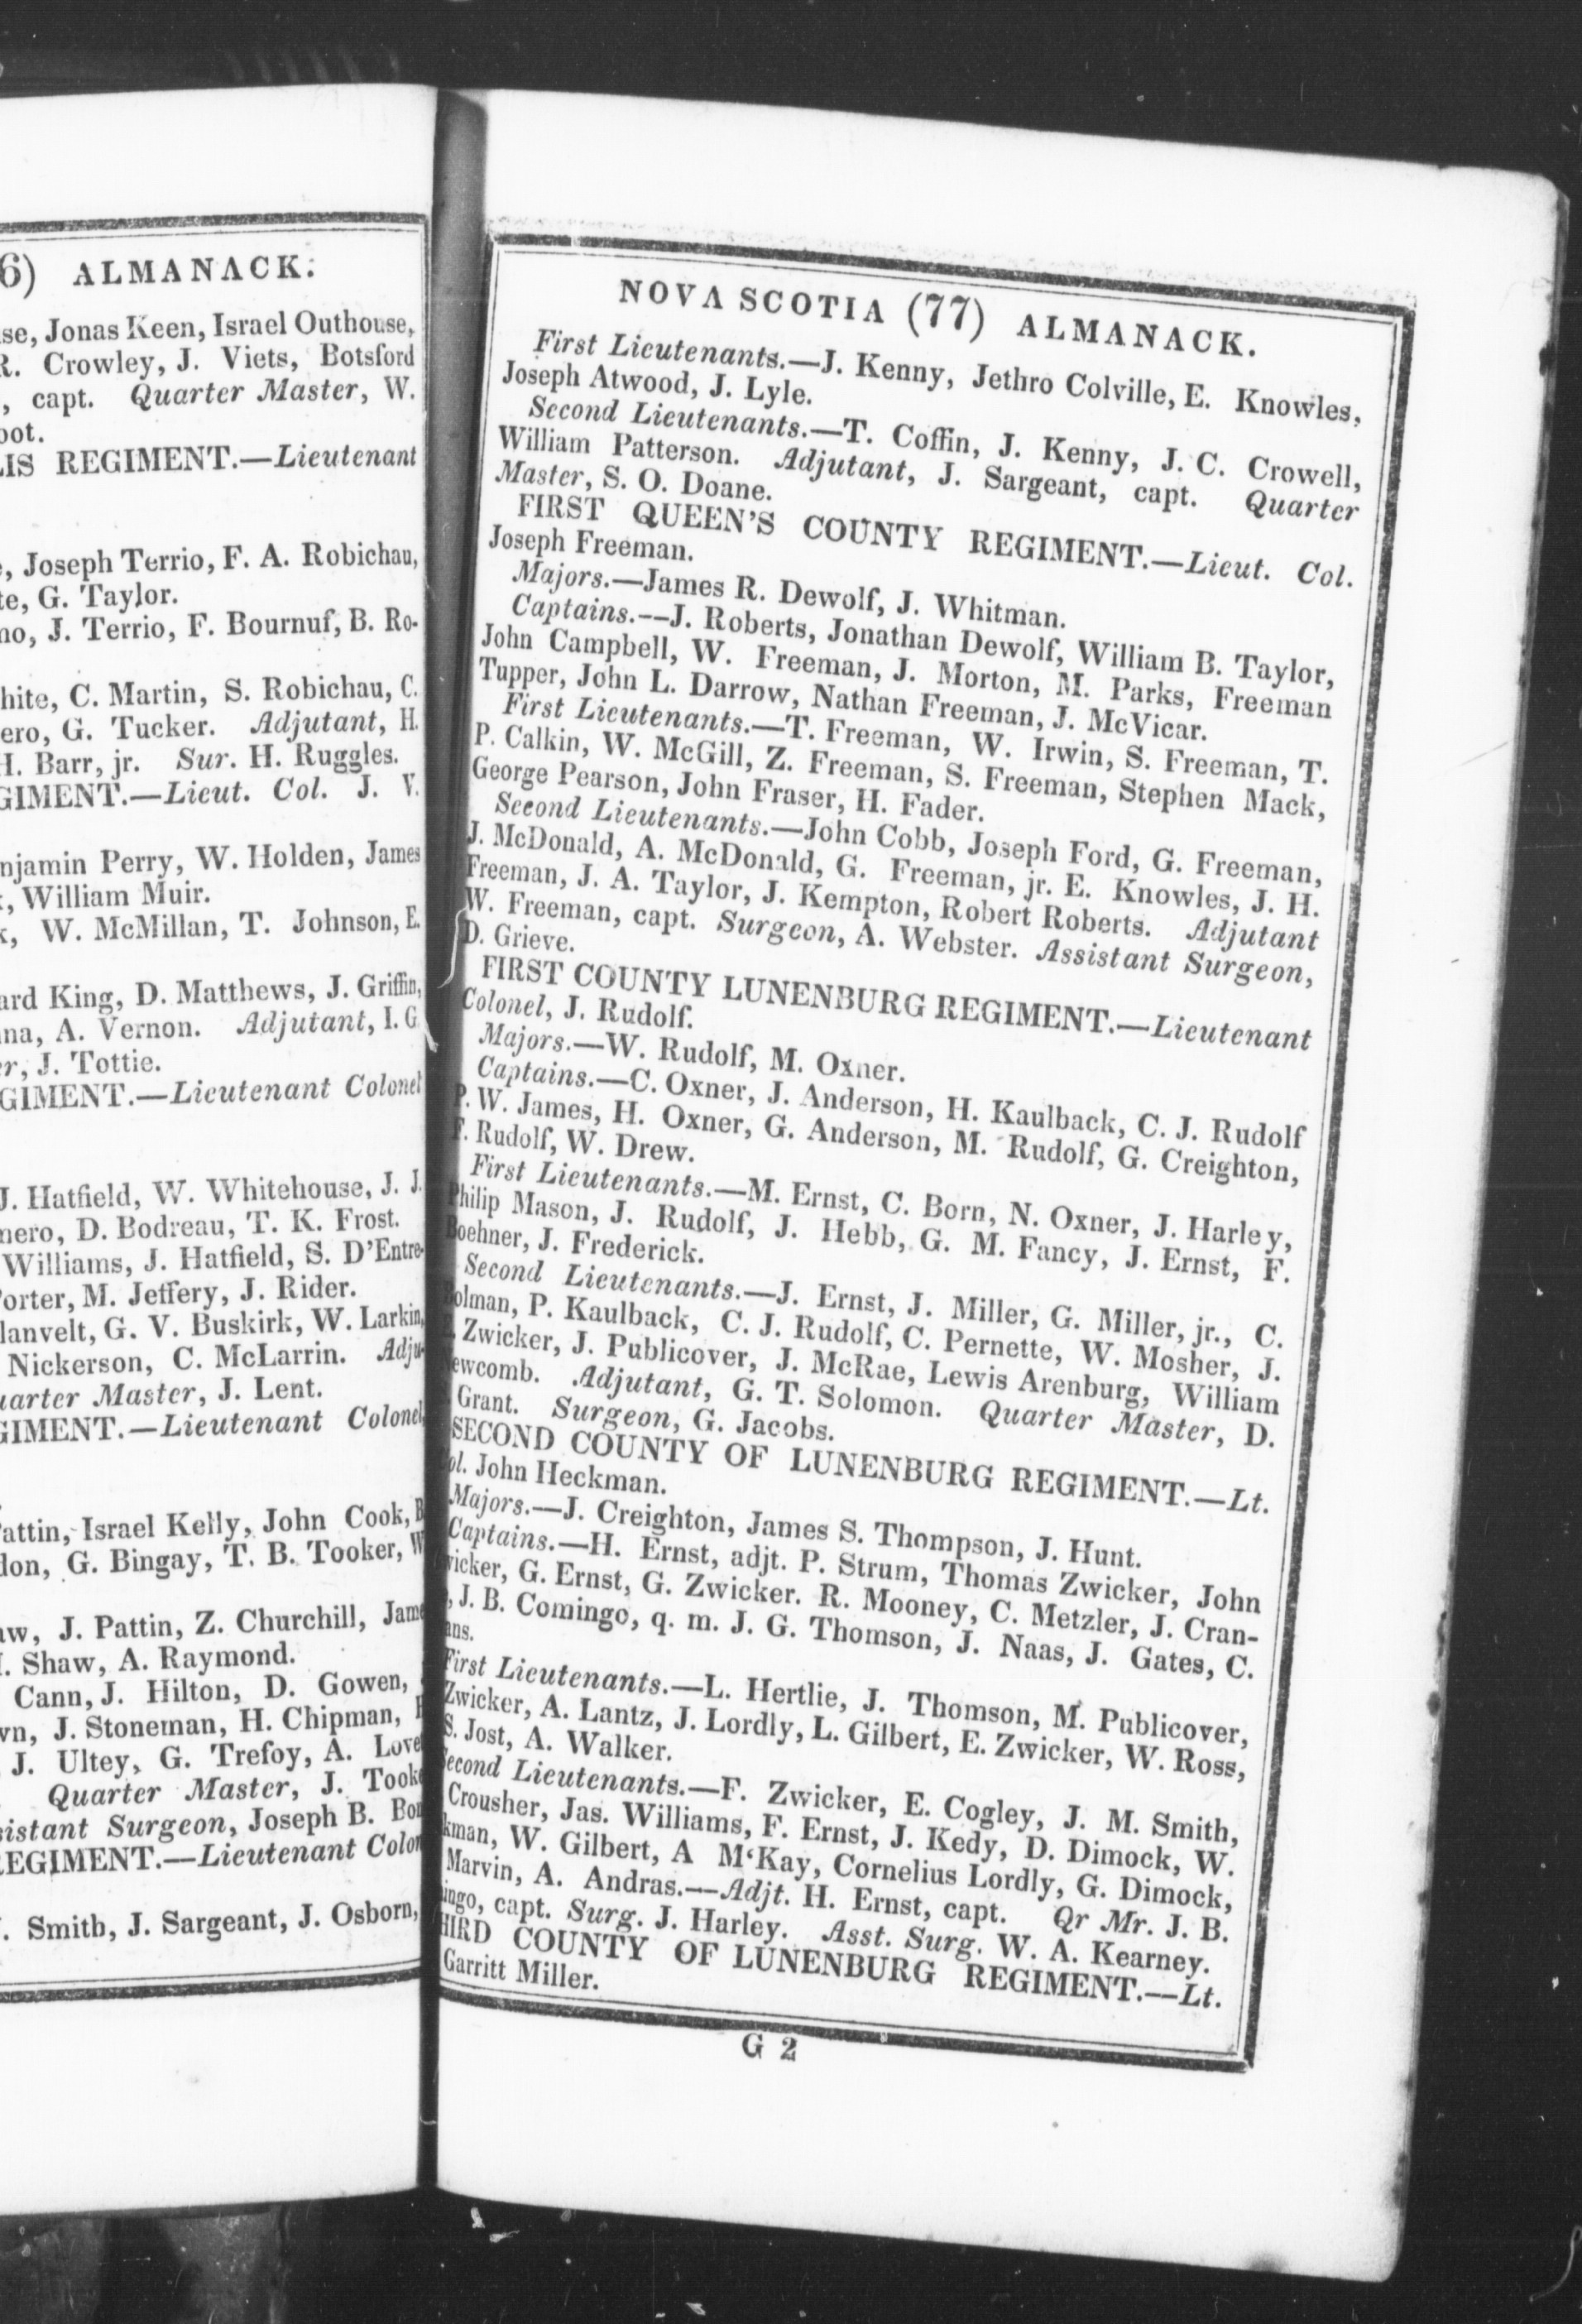 6) ALMANACK.
se, Jonas Keen, Israel Outhouse,
R. Crowley, J. Viets, Botsford
, capt. Quarter Master, W.
oot.
LIS REGIMENT.—Lieutenant
, Joseph Terrio, F. A. Robichau,
te, G. Taylor.
no, J. Terrio, F. Bournuf, B. Ro-
hite, C. Martin, S. Robichau, C.
ero, G. Tucker. Adjutant, H.
H. Barr, jr. Sur. H. Ruggles.
GIMENT.—Lieut. Col. J. V.
njamin Perry, W. Holden, James
, William Muir.
k, W. McMillan, T. Johnson, E.
ard King, D. Matthews, J. Griffin,
na, A. Vernon. Adjutant, I. G
er, J. Tottie.
GIMENT.—Lieutenant Colonel
J. Hatfield, W. Whitehouse, J. J.
nero, D. Bodreau, T. K. Frost.
Williams, J. Hatfield, S. D'Entre-
Porter, M. Jeffery, J. Rider.
lanvelt, G. V. Buskirk, W. Larkin,
Nickerson, C. McLarrin. Adju-
uarter Master, J. Lent.
GIMENT.—Lieutenant Colonel
Pattin, Israel Kelly, John Cook, B
don, G. Bingay, T. B. Tooker, W
aw, J. Pattin, Z. Churchill, Jame
. Shaw, A. Raymond.
Cann, J. Hilton, D. Gowen,
wn, J. Stoneman, H. Chipman,
J. Ultey, G. Trefoy, A. Love
Quarter Master, J. Took
sistant Surgeon, Joseph B. Bon
REGIMENT.—Lieutenant Colon
. Smith, J. Sargeant, J. Osborn,
NOVA SCOTIA (77) ALMANACK.
First Lieutenants.—J. Kenny, Jethro Colville, E. Knowles,
Joseph Atwood, J. Lyle.
Second Lieutenants.—T. Coffin, J. Kenny, J. C. Crowell,
William Patterson. Adjutant, J. Sargeant, capt. Quarter
Master, S. O. Doane.
FIRST QUEEN'S COUNTY REGIMENT.—Lieut. Col.
Joseph Freeman.
Majors.—James R. Dewolf, J. Whitman.
Captains.—J. Roberts, Jonathan Dewolf, William B. Taylor,
John Campbell, W. Freeman, J. Morton, M. Parks, Freeman
Tupper, John L. Darrow, Nathan Freeman, J. McVicar.
First Lieutenants.—T. Freeman, W. Irwin, S. Freeman, T.
P. Calkin, W. McGill, Z. Freeman, S. Freeman, Stephen Mack,
George Pearson, John Fraser, H. Fader.
Second Lieutenants.—John Cobb, Joseph Ford, G. Freeman,
J. McDonald, A. McDonald, G. Freeman, jr. E. Knowles, J. H.
Freeman, J. A. Taylor, J. Kempton, Robert Roberts. Adjutant
W. Freeman, capt. Surgeon, A. Webster. Assistant Surgeon,
D. Grieve.
FIRST COUNTY LUNENBURG REGIMENT.—Lieutenant
Colonel, J. Rudolf.
Majors.—W. Rudolf, M. Oxner.
Captains.—C. Oxner, J. Anderson, H. Kaulback, C. J. Rudolf
P. W. James, H. Oxner, G. Anderson, M. Rudolf, G. Creighton,
F. Rudolf, W. Drew.
First Lieutenants.—M. Ernst, C. Born, N. Oxner, J. Harley,
Philip Mason, J. Rudolf, J. Hebb, G. M. Fancy, J. Ernst, F.
Boehner, J. Frederick.
Second Lieutenants.—J. Ernst, J. Miller, G. Miller, jr., C.
Bolman, P. Kaulback, C. J. Rudolf, C. Pernette, W. Mosher, J.
Zwicker, J. Publicover, J. McRae, Lewis Arenburg, William
ewcomb. Adjutant, G. T. Solomon. Quarter Master, D.
Grant. Surgeon, G. Jacobs.
SECOND COUNTY OF LUNENBURG REGIMENT.—Lt.
Col. John Heckman.
Majors.—J. Creighton, James S. Thompson, J. Hunt.
Captains.—H. Ernst, adjt. P. Strum, Thomas Zwicker, John
wicker, G. Ernst, G. Zwicker. R. Mooney, C. Metzler, J. Cran-
, J. B. Comingo, q. m. J. G. Thomson, J. Naas, J. Gates, C.
ans.
First Lieutenants.—L. Hertlie, J. Thomson, M. Publicover,
Zwicker, A. Lantz, J. Lordly, L. Gilbert, E. Zwicker, W. Ross,
S. Jost, A. Walker.
Second Lieutenants.—F. Zwicker, E. Cogley, J. M. Smith,
Crousher, Jas. Williams, F. Ernst, J. Kedy, D. Dimock, W.
kman, W. Gilbert, A M'Kay, Cornelius Lordly, G. Dimock,
Marvin, A. Andras.—Adjt. H. Ernst, capt. Qr Mr. J. B.
ingo, capt. Surg. J. Harley. Asst. Surg. W. A. Kearney.
HIRD COUNTY OF LUNENBURG REGIMENT.—Lt.
Garritt Miller.
G 2